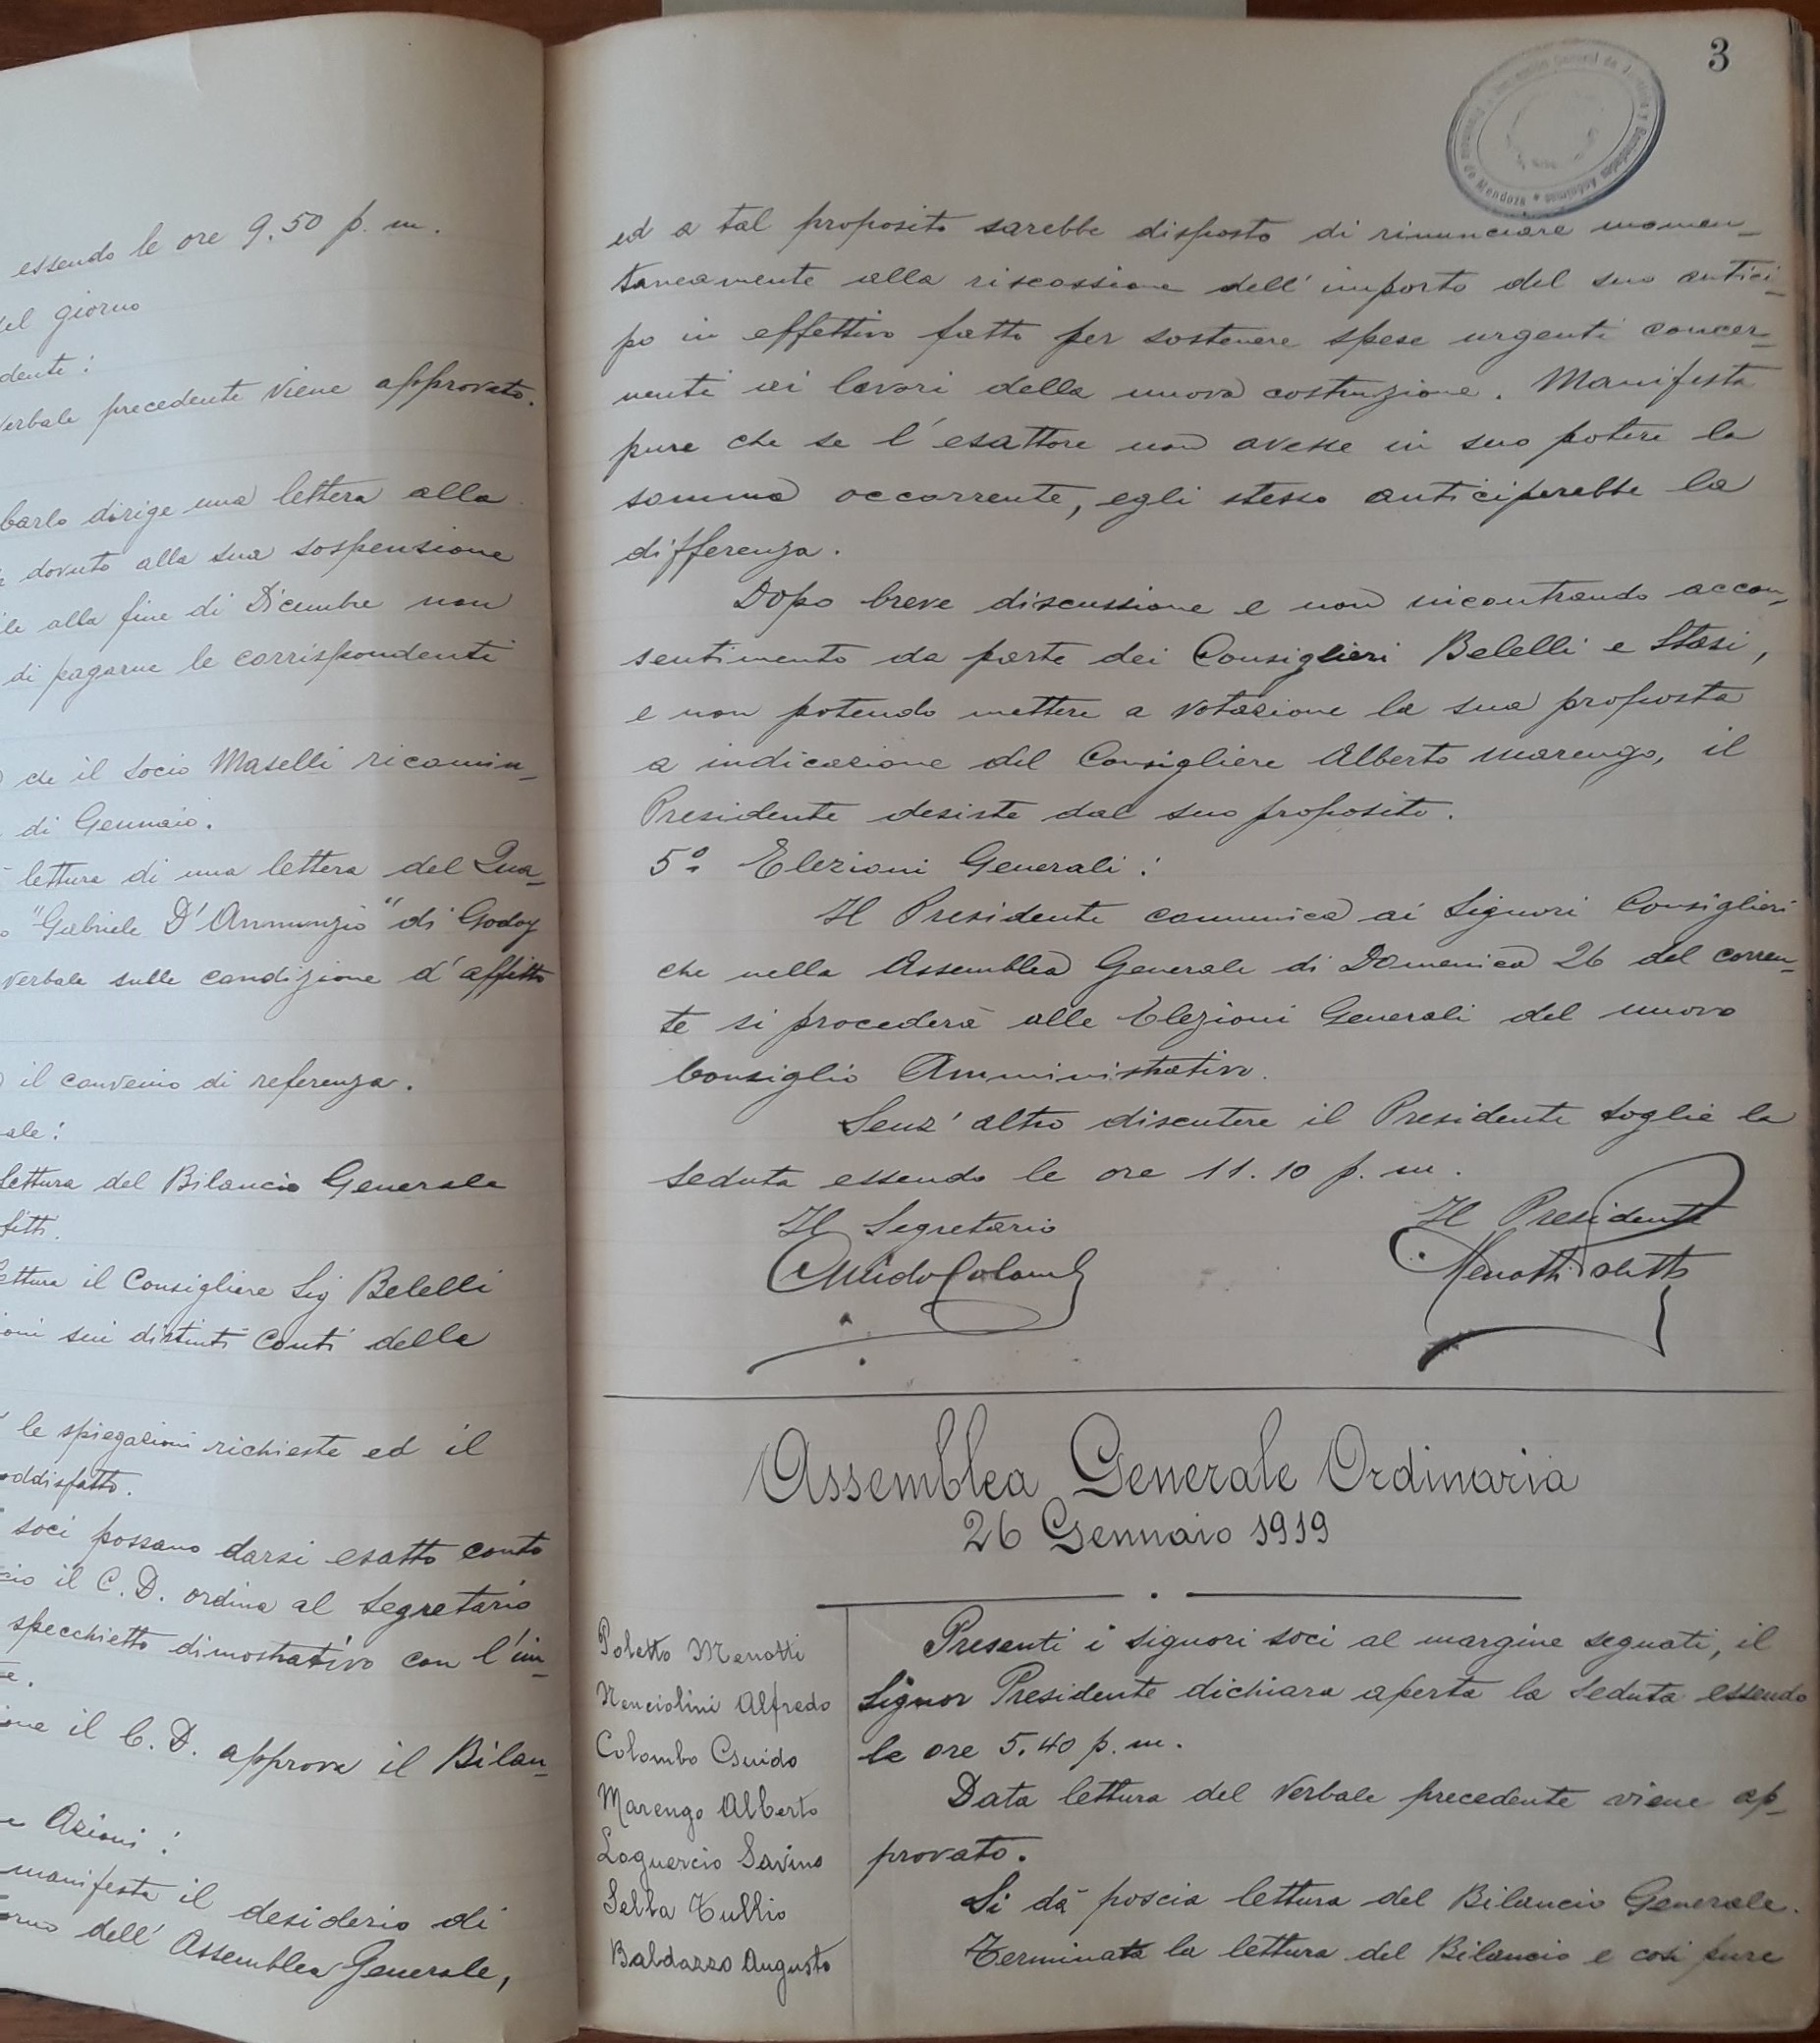 essendo le ore 9.50 p. m.
del giorno
dente:
verbale precedente viene approvato.
barlo dirige una lettera alla
dovuto alla sua sospensione
alla fine di Dicembre non
di pagarne le corrispondenti
che il socio Maselli ricomin-
di Gennaio.
lettura di una lettera del Qua-
"Gabriele D'Annunzio" di Godoy
verbale sulle condizione d'affitto
il convenio di referenza.
ale:
lettura del Bilancio Generale
fitti.
lettura il Consigliere Sig Belelli
oni sui distinti Conti della
le spiegazioni richieste ed il
oddisfatto.
soci possano darsi esatto conto
cio il C. D. ordina al Segretario
specchietto dimostrativo con l'im-
e.
one il C. D. approva il Bilan-
e Azioni:
manifesta il desiderio di
orno dell'Assemblea Generale,
3
Provincia de Mendoza
General de Justicia y Sociedades Anónimas
ed a tal proposito sarebbe disposto di rinunciare momen-
taneamente alla riscossione dell'importo del suo antici-
po in effettivo fatto per sostenere spese urgenti concer-
nenti ai lavori della nuova costruzione. Manifesta
pure che se l'esattore non avesse in suo potere la
somma occorrente, egli stesso anticiperebbe la
differenza.
Dopo breve discussione e non incontrando accon-
sentimento da parte dei Consiglieri Belelli e Stasi,
e non potendo mettere a votazione la sua proposta
a indicazione del Consigliere Alberto Marengo, il
Presidente desiste dal suo proposito.
5º Elezioni Generali:
Il Presidente comunica ai Signori Consiglieri
che nella Assemblea Generale di Domenica 26 del corren-
te si procederà alle Elezioni Generali del nuovo
Consiglio Amministrativo.
Senz'altro discutere il Presidente toglie la
seduta essendo le ore 11.10 p. m.
Il Segretario
Il Presidente
Guido Colombo
Menotti Poletto
Assemblea Generale Ordinaria
26 Gennaio 1919
Poletto Menotti
Nenciolini Alfredo
Colombo Guido
Marengo Alberto
Loguercio Savino
Sella Tullio
Baldazzo Augusto
Presenti i signori soci al margine segnati, il
Signor Presidente dichiara aperta la seduta essendo
le ore 5.40 p. m.
Data lettura del Verbale precedente viene ap-
provato.
Si dà poscia lettura del Bilancio Generale.
Terminata la lettura del Bilancio e così pure